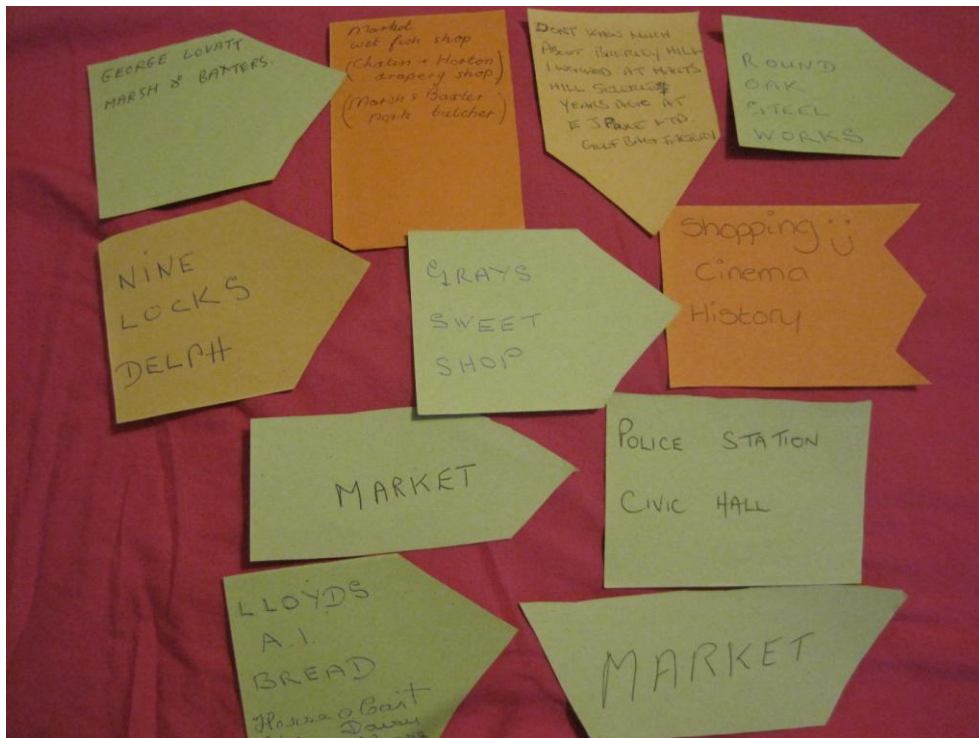 GEORGE LOVATT
MARSH & BAXTERS.
Market
wet fish shop
(Chatin + Horton
drapery shop)
(Marsh & Baxter
pork butcher)
DONT KNOW MUCH
ABOUT BRIERLEY HILL
I WORKED AT MERITS
HILL
YEARS AGO AT
E J PAYNE LTD
ROUND
OAK
STEEL
WORKS
NINE
LOCKS
DELPH
GRAYS
SWEET
SHOP
Shopping :)
Cinema
History
MARKET
POLICE STATION
CIVIC HALL
LLOYDS
A.I.
BREAD
Horse & Cart
Dairy
MARKET